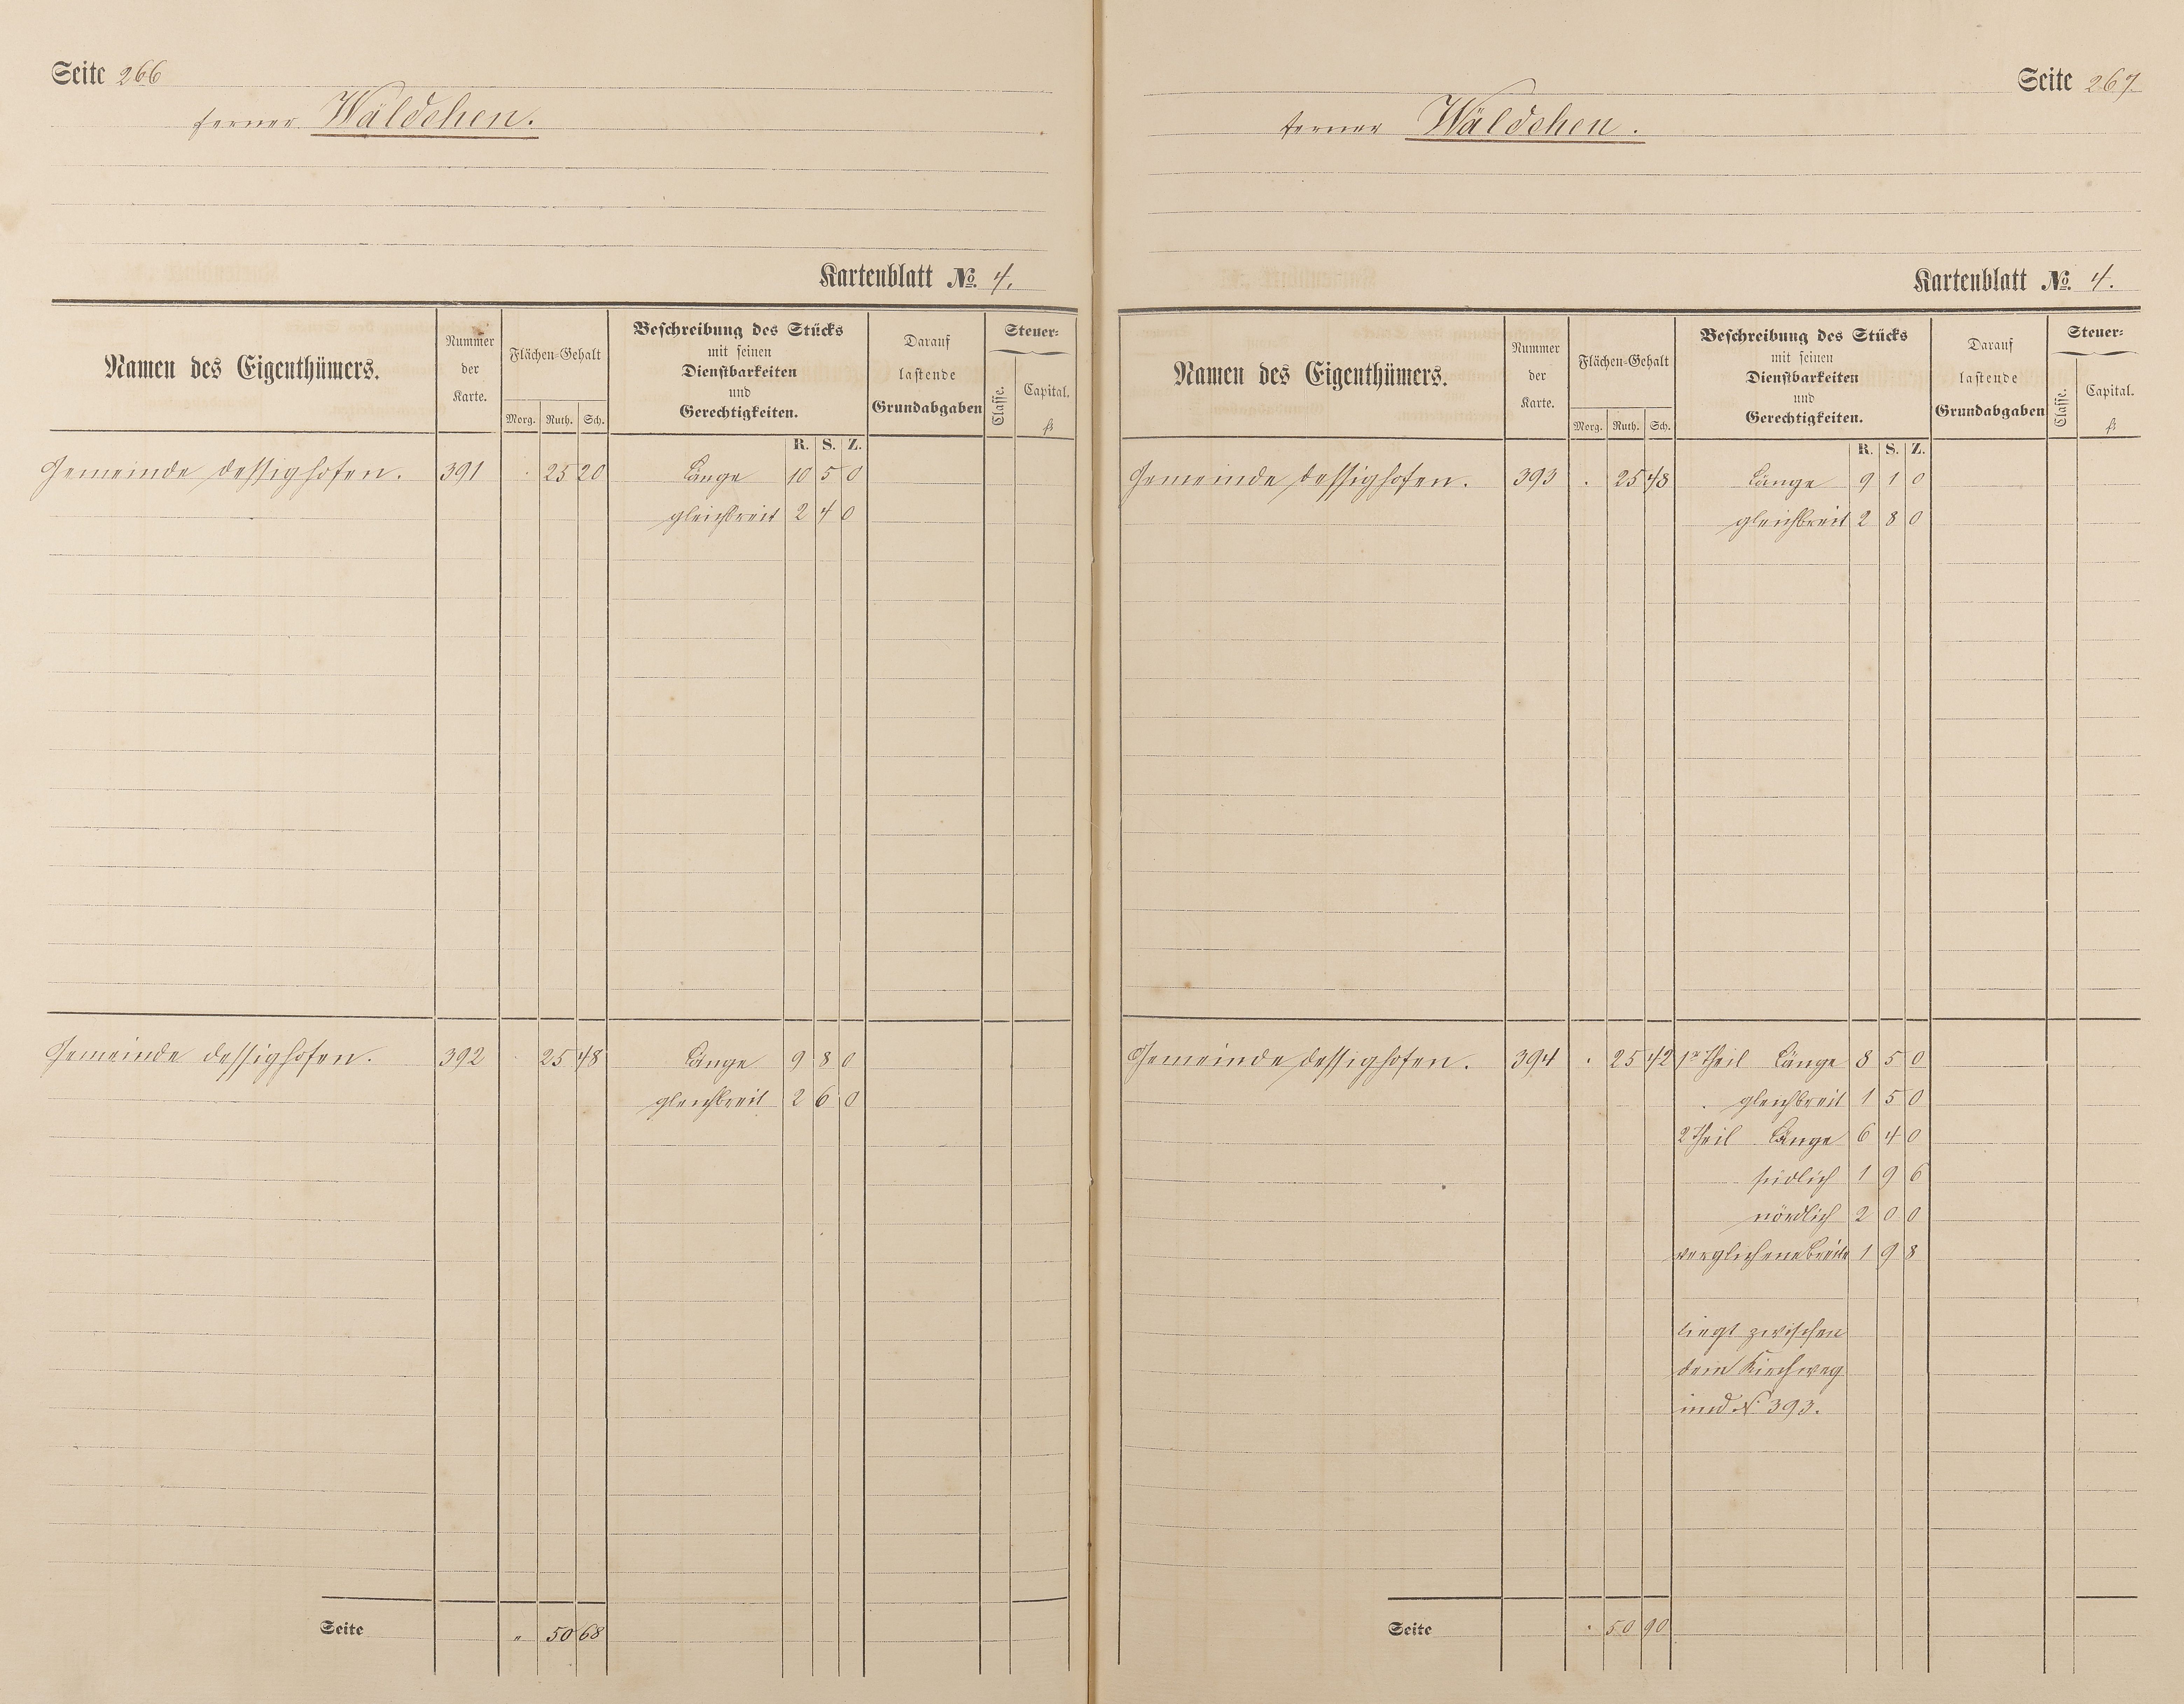 Seite 266
ferner Wäldchen.
Kartenblatt No. 4.
Namen des Eigenthümers.
Nummer der Karte.
Flächen-Gehalt
Morg. Ruth. Sch.
Beschreibung des Stücks
mit seinen
Dienstbarkeiten
und
Gerechtigkeiten.
Darauf
lastende
Grundabgaben
Steuer-
Classe.
Capital.
fl
R. S. Z.
Gemeinde Dessighofen. 391 . 25 20 Länge 10 5 0
gleichbreit 2 4 0
Gemeinde Dessighofen. 392 . 25 48 Länge 9 8 0
gleichbreit 2 6 0
Seite " 50 68
Seite 267
ferner Wäldchen.
Kartenblatt No. 4.
Namen des Eigenthümers.
Nummer der Karte.
Flächen-Gehalt
Morg. Ruth. Sch.
Beschreibung des Stücks
mit seinen
Dienstbarkeiten
und
Gerechtigkeiten.
Darauf
lastende
Grundabgaben
Steuer-
Classe.
Capital.
fl
R. S. Z.
Gemeinde Dessighofen. 393 . 25 48 Länge 9 1 0
gleichbreit 2 8 0
Gemeinde Dessighofen. 394 . 25 42 1r Theil Länge 8 5 0
gleichbreit 1 5 0
2 Theil Länge 6 4 0
südlich 1 9 6
nördlich 2 0 0
verglichene Breite 1 9 8
liegt zwischen
dem Kirchweg
und N 393.
Seite . 50 90